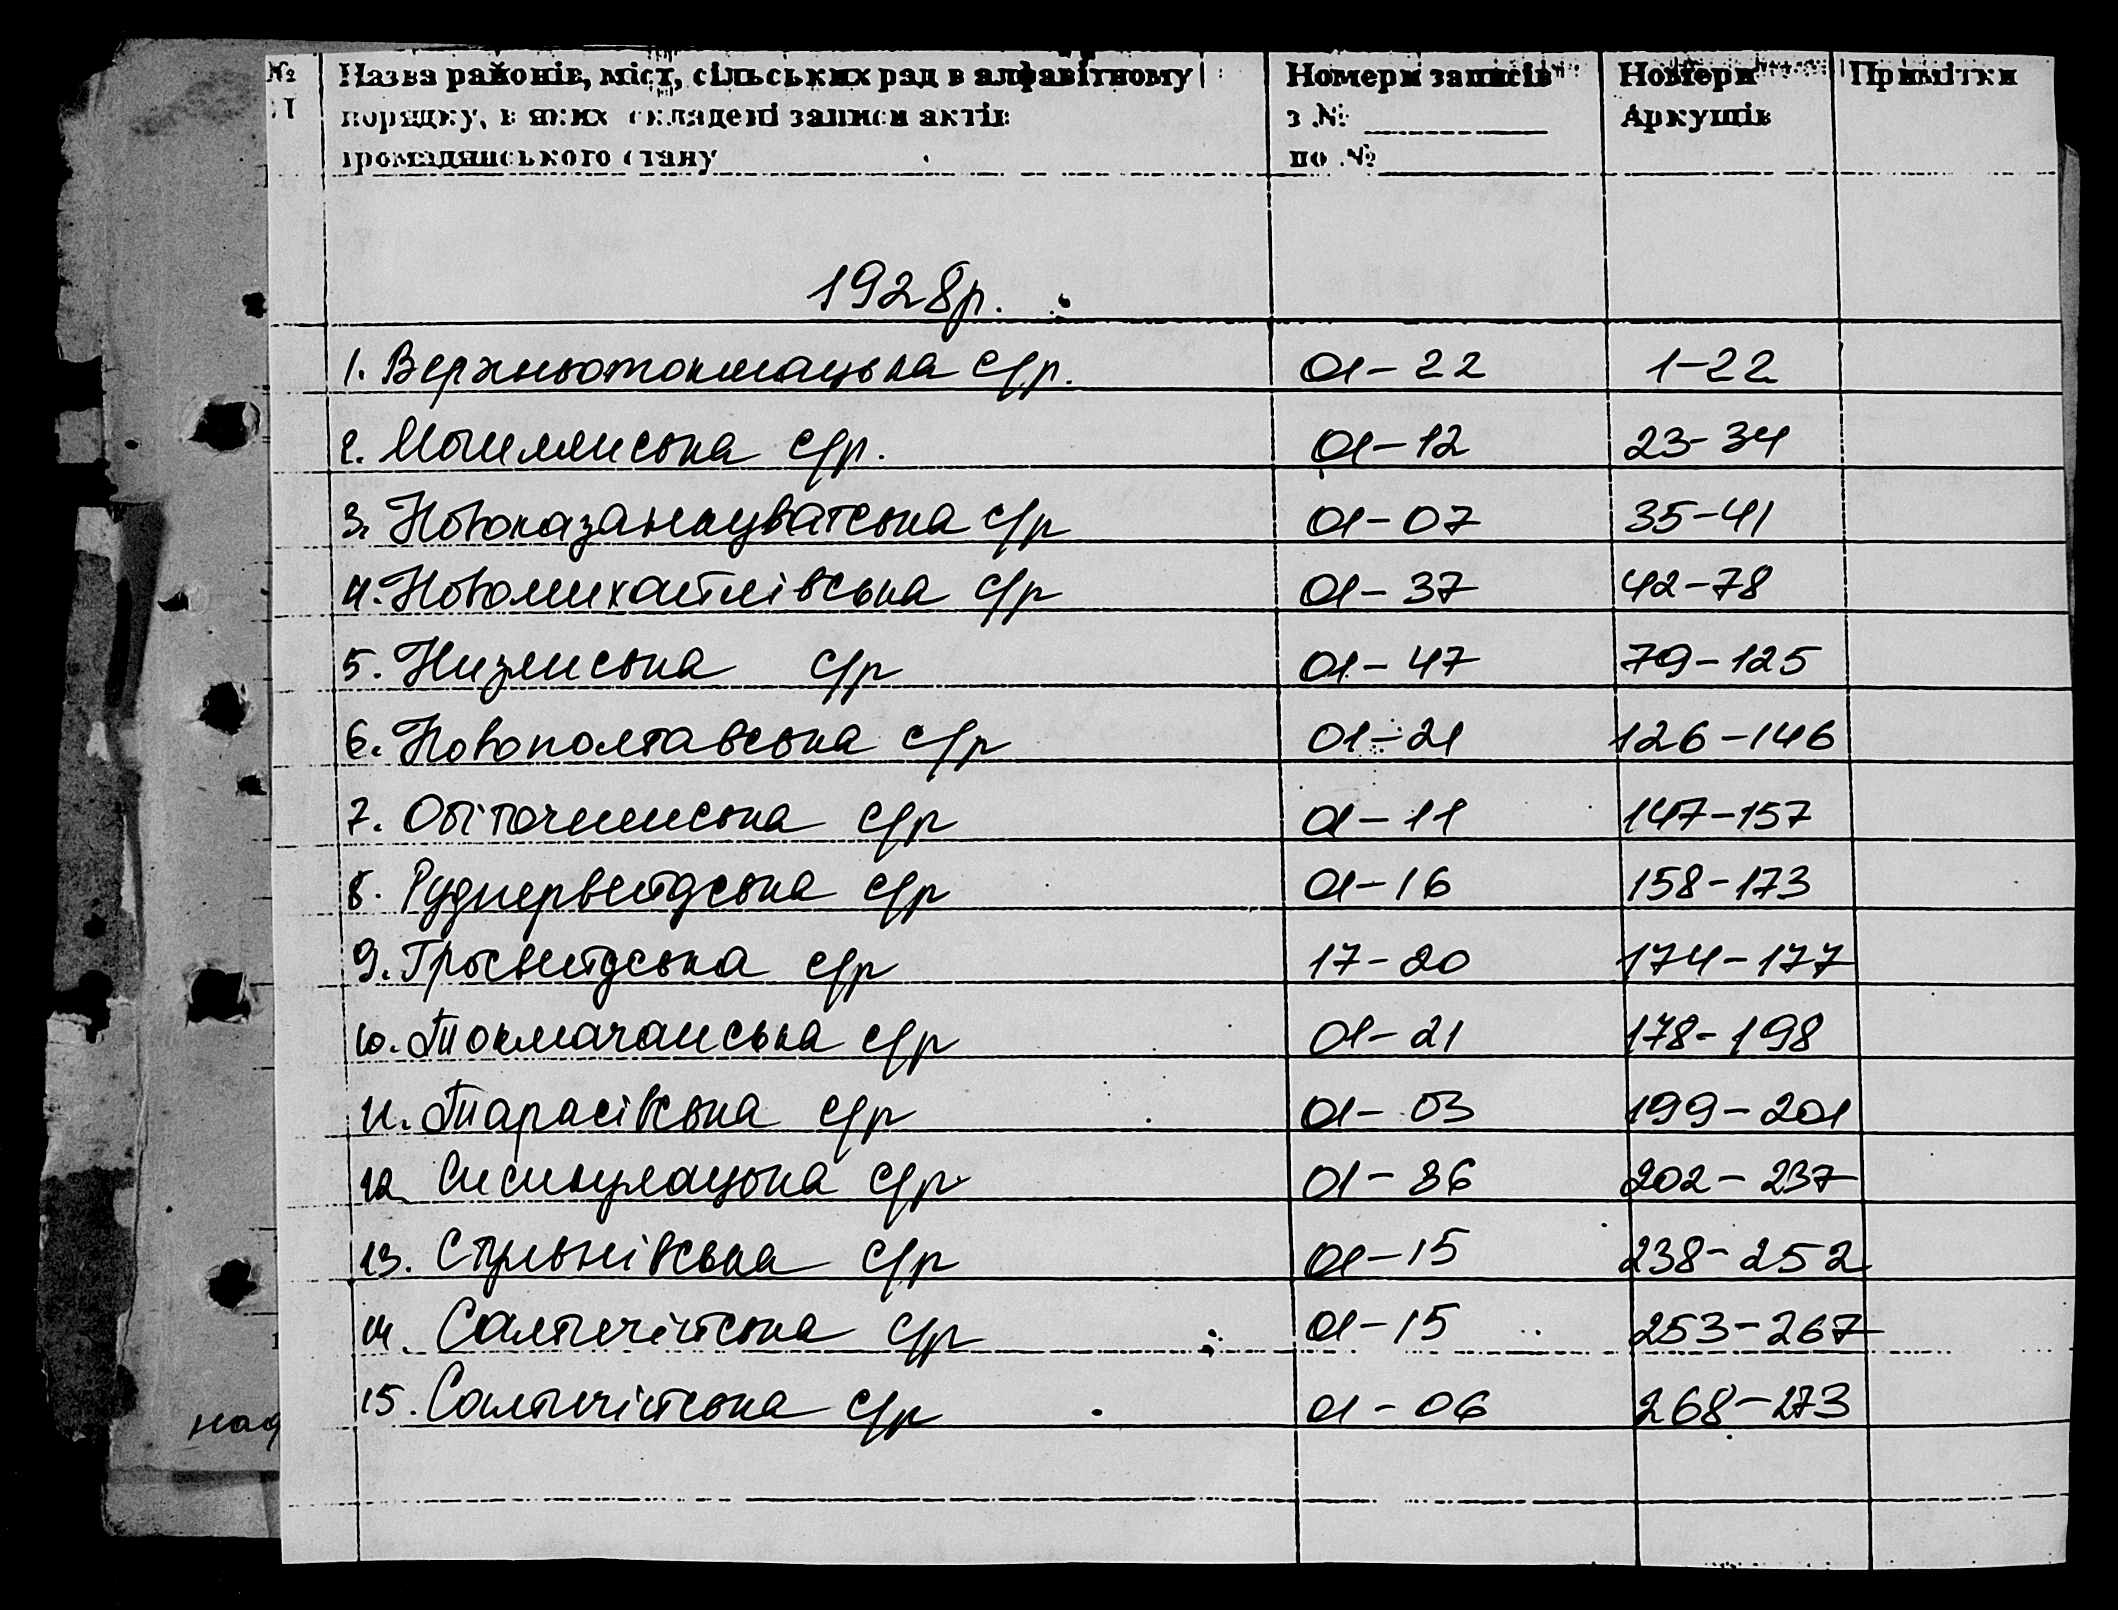 № Назва районів, міст, сільських рад в алфавітному Номери записів Номери Примітки
П порядку, в яких складені записи актів з № Аркушів
громадянського стану по №
1928р.
1. Верхньотокмацька с/р. 01-22 1-22
2. с/р. 01-12 23-34
3. Новоказанкуватська с/р 01-07 35-41
4. Новомихайлівська с/р 01-37 42-78
5. с/р 01-47 79-125
6. Новополтавська с/р 01-21 126-146
7. Обіточненська с/р 01-11 147-157
8. Руднервейдська с/р 01-16 158-173
9. Гросвейдська с/р 17-20 174-177
10. Токмачанська с/р 01-21 178-198
11. Тарасівська с/р 01-03 199-201
12. Сисикулацька с/р 01-36 202-237
13. Стульнівська с/р 01-15 238-252
14. Салтичійська с/р 01-15 253-267
15. Салтичійська с/р 01-06 268-273
над